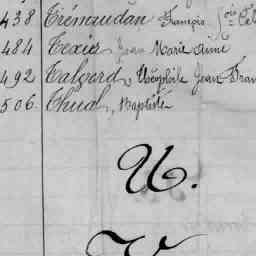 438 Trémaudan François
484 Texier Jean Marie Aimé
492 Talvard, Théophile Jean Fran
506. Thual, Baptiste
U.
V